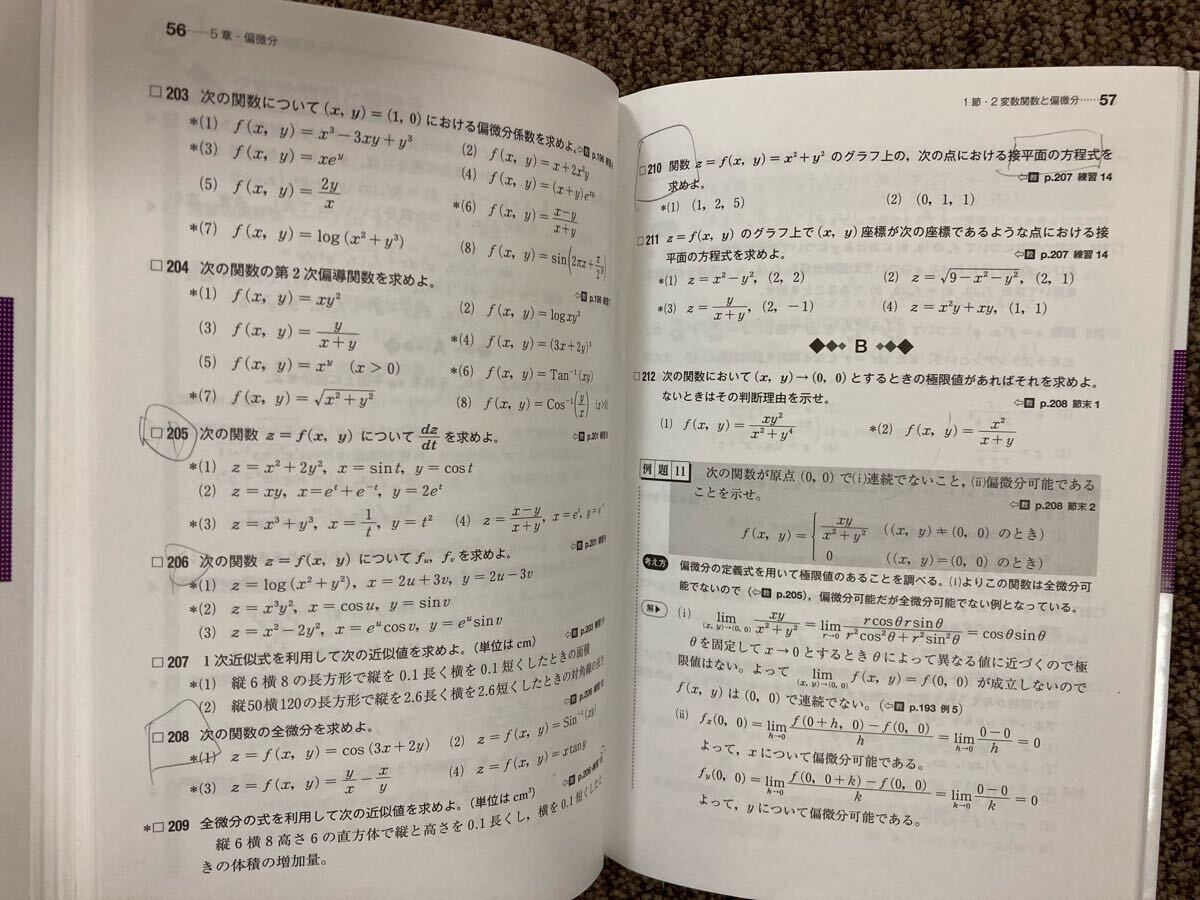 56……5章・偏微分
□203 次の関数について (x, y)=(1, 0) における偏微分係数を求めよ。
*(1) f(x, y)=x³−3xy+y³
(2) f(x, y)=x+2x²y
*(3) f(x, y)=xe^y
(4) f(x, y)=(x+y)e^{xy}
(5) f(x, y)=2y/x
*(6) f(x, y)=(x−y)/(x+y)
*(7) f(x, y)=log(x²+y³)
(8) f(x, y)=sin(2πx+(π/2)y)
□204 次の関数の第2次偏導関数を求めよ。
*(1) f(x, y)=xy²
(2) f(x, y)=logxy²
(3) f(x, y)=y/(x+y)
*(4) f(x, y)=(3x+2y)³
(5) f(x, y)=x^y (x>0)
*(6) f(x, y)=Tan⁻¹(xy)
*(7) f(x, y)=√(x²+y²)
(8) f(x, y)=Cos⁻¹(y/x)
□205 次の関数 z=f(x, y) について dz/dt を求めよ。
*(1) z=x²+2y², x=sin t, y=cos t
(2) z=xy, x=e^t+e^{−t}, y=2e^t
*(3) z=x³+y³, x=1/t, y=t²
(4) z=(x−y)/(x+y), x=e^t, y=e^{−t}
□206 次の関数 z=f(x, y) について f_u, f_v を求めよ。
*(1) z=log(x²+y²), x=2u+3v, y=2u−3v
*(2) z=x³y², x=cos u, y=sin v
(3) z=x²−2y², x=e^u cos v, y=e^u sin v
□207 1次近似式を利用して次の近似値を求めよ。(単位はcm)
*(1) 縦6横8の長方形で縦を0.1長く横を0.1短くしたときの面積
(2) 縦50横120の長方形で縦を2.6長く横を2.6短くしたときの対角線の長さ
□208 次の関数の全微分を求めよ。
*(1) z=f(x, y)=cos(3x+2y)
(2) z=f(x, y)=Sin⁻¹(xy)
*(3) z=f(x, y)=y/x−x/y
(4) z=f(x, y)=xtany
*□209 全微分の式を利用して次の近似値を求めよ。(単位はcm³)
縦6横8高さ6の直方体で縦と高さを0.1長くし，横を0.1短くしたと
きの体積の増加量。
1節・2変数関数と偏微分……57
□210 関数 z=f(x, y)=x²+y² のグラフ上の，次の点における接平面の方程式を
求めよ。
⇦教 p.207 練習14
*(1) (1, 2, 5)
(2) (0, 1, 1)
□211 z=f(x, y) のグラフ上で (x, y) 座標が次の座標であるような点における接
平面の方程式を求めよ。
⇦教 p.207 練習14
*(1) z=x²−y², (2, 2)
(2) z=√(9−x²−y²), (2, 1)
*(3) z=y/(x+y), (2, −1)
(4) z=x²y+xy, (1, 1)
B
□212 次の関数において (x, y)→(0, 0) とするときの極限値があればそれを求めよ。
ないときはその判断理由を示せ。
⇦教 p.208 節末1
(1) f(x, y)=xy²/(x²+y⁴)
*(2) f(x, y)=x²/(x+y)
例題11 次の関数が原点 (0, 0) で(i)連続でないこと，(ii)偏微分可能である
ことを示せ。
⇦教 p.208 節末2
f(x, y)={ xy/(x²+y²) ((x, y)≠(0, 0) のとき)
0 ((x, y)=(0, 0) のとき)
考え方 偏微分の定義式を用いて極限値のあることを調べる。(i)よりこの関数は全微分可
能でないので (⇦教 p.205)，偏微分可能だが全微分可能でない例となっている。
解▶ (i) lim_{(x, y)→(0, 0)} xy/(x²+y²)=lim_{r→0} rcosθrsinθ/(r²cos²θ+r²sin²θ)=cosθsinθ
θを固定して x→0 とするときθによって異なる値に近づくので極
限値はない。よって lim_{(x, y)→(0, 0)} f(x, y)=f(0, 0) が成立しないので
f(x, y) は (0, 0) で連続でない。(⇦教 p.193 例5)
(ii) f_x(0, 0)=lim_{h→0} (f(0+h, 0)−f(0, 0))/h=lim_{h→0} (0−0)/h=0
よって，x について偏微分可能である。
f_y(0, 0)=lim_{k→0} (f(0, 0+k)−f(0, 0))/k=lim_{k→0} (0−0)/k=0
よって，y について偏微分可能である。